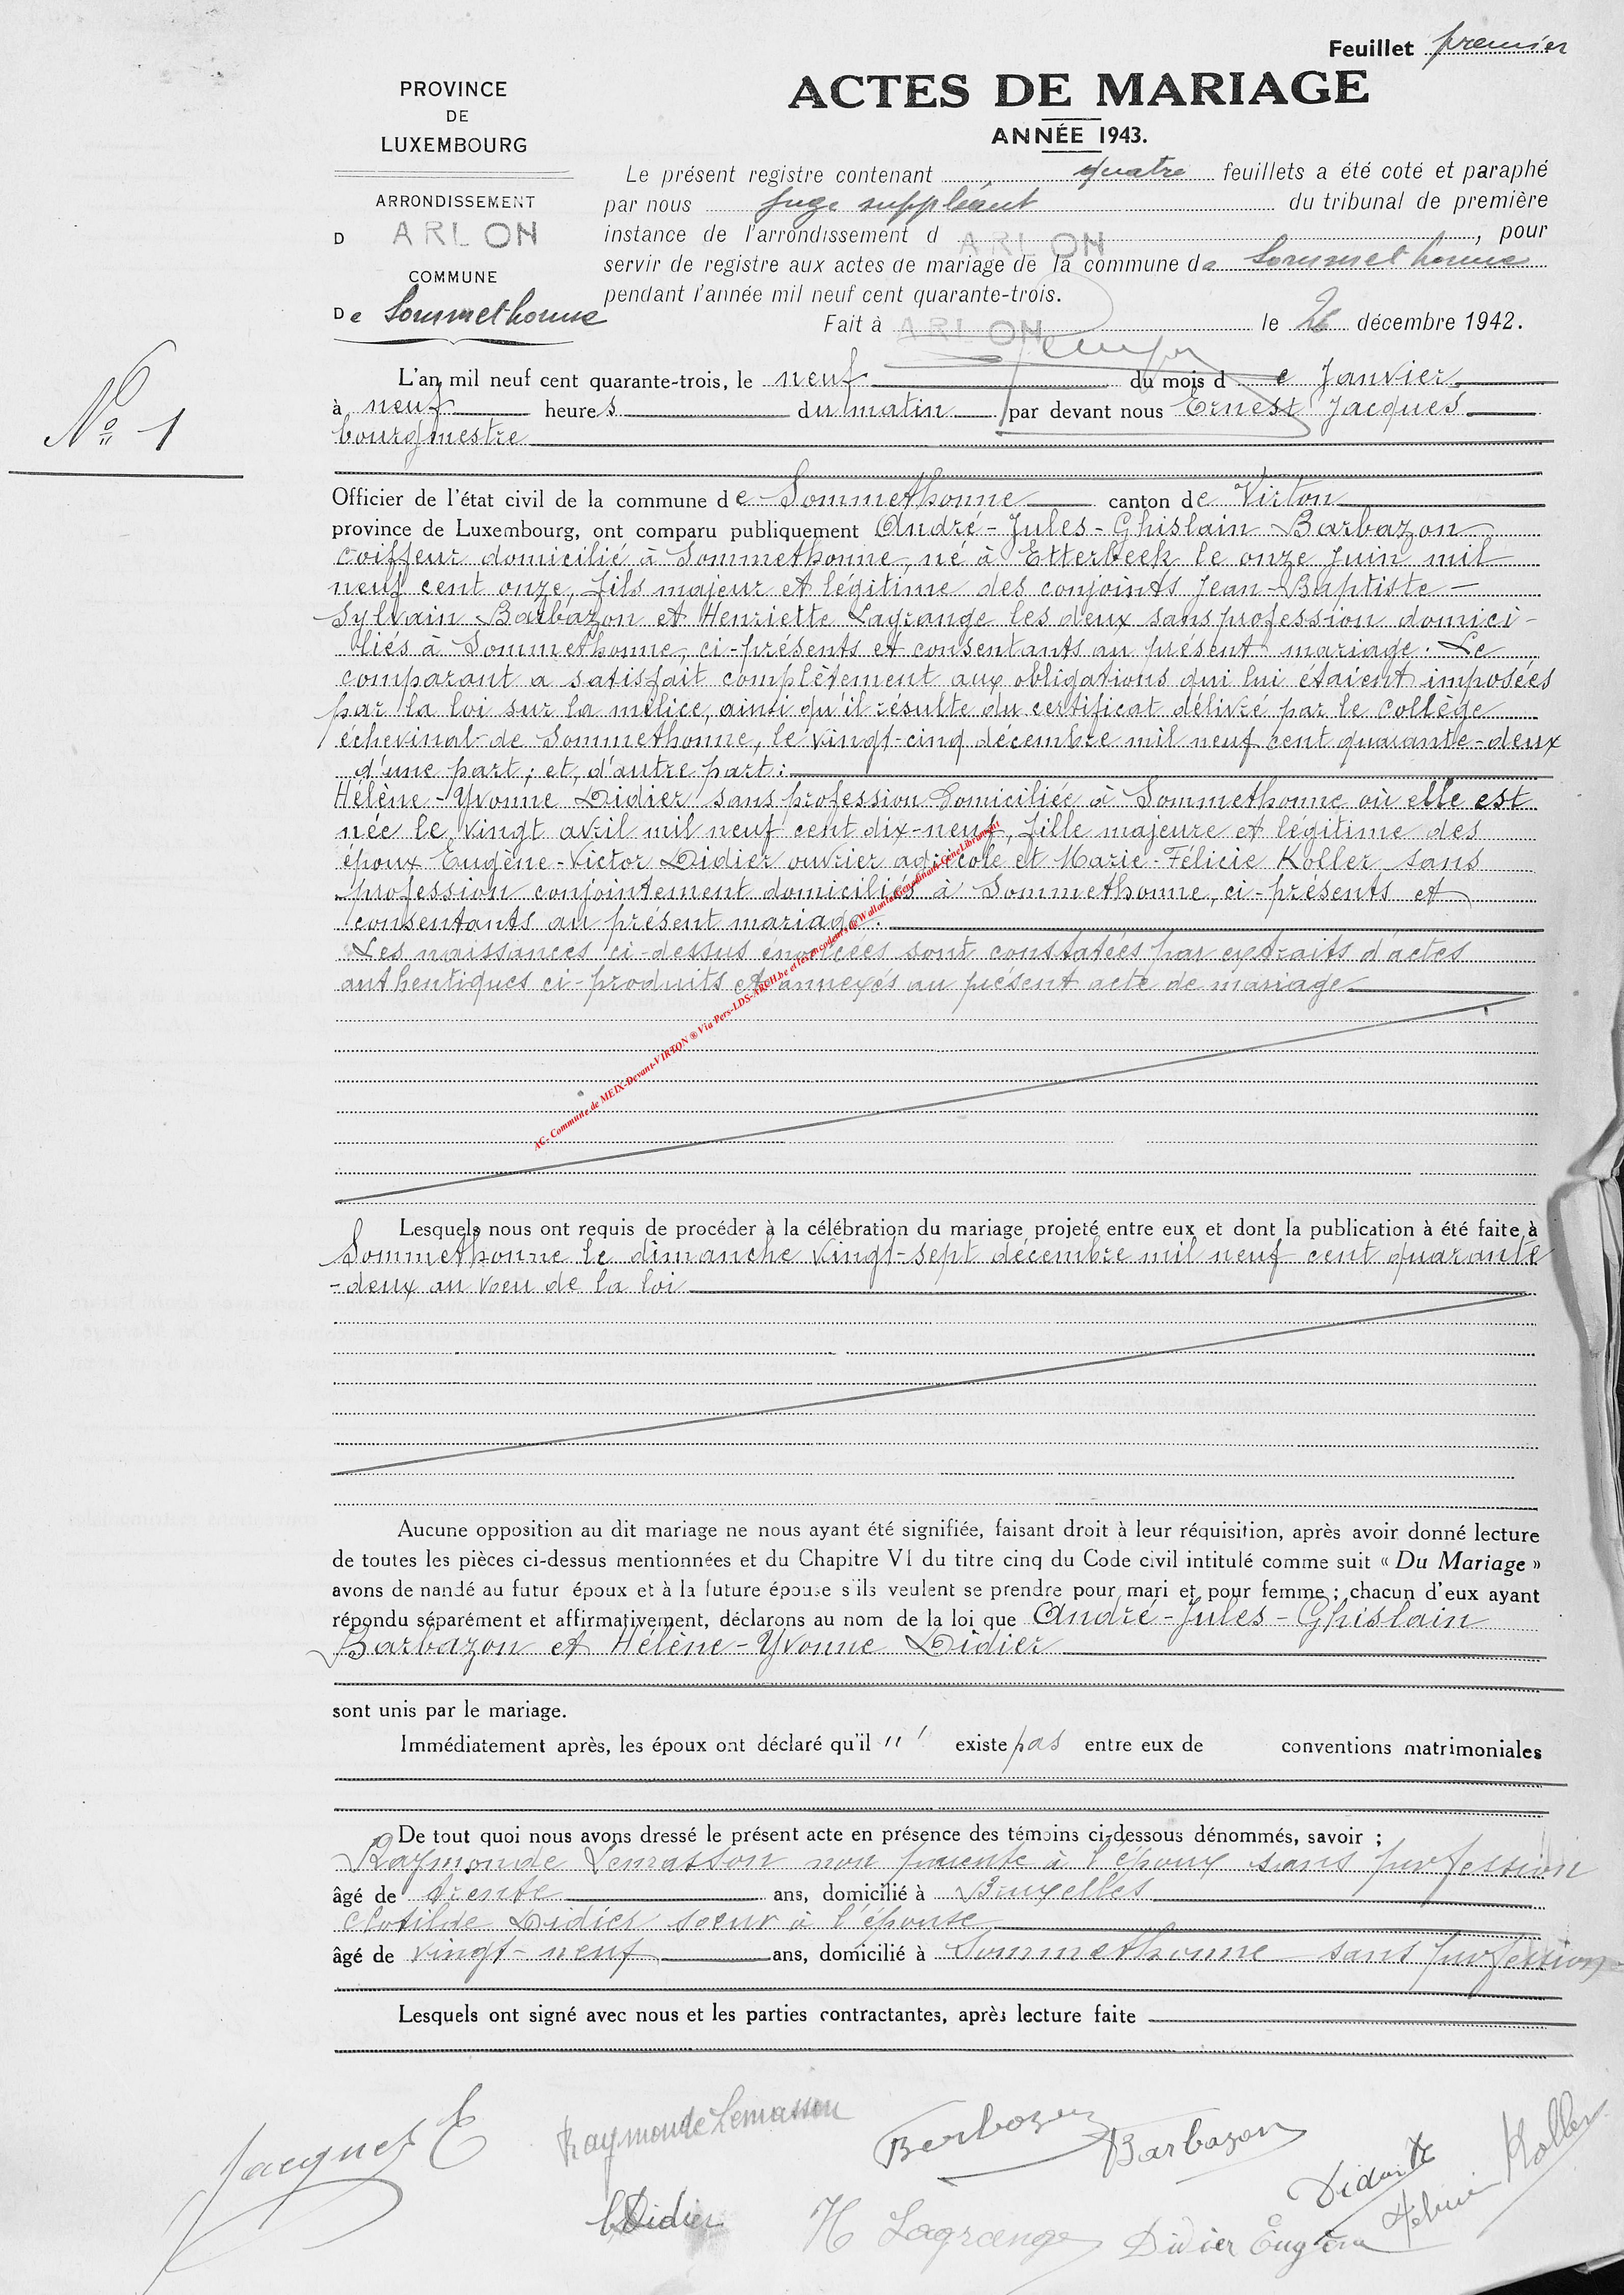 Feuillet premier
PROVINCE
DE
LUXEMBOURG
ARRONDISSEMENT
D ARLON
COMMUNE
De Sommethonne
ACTES DE MARIAGE
ANNÉE 1943.
Le présent registre contenant quatre feuillets a été coté et paraphé
par nous Juge suppléant du tribunal de première
instance de l'arrondissement d ARLON, pour
servir de registre aux actes de mariage de la commune de Sommethonne
pendant l'année mil neuf cent quarante-trois.
Fait à ARLON le 26 décembre 1942.
N° 1
L'an mil neuf cent quarante-trois, le neuf du mois de Janvier
à neuf heures du matin par devant nous Ernest Jacques
bourgmestre
Officier de l'état civil de la commune de Sommethonne canton de Virton
province de Luxembourg, ont comparu publiquement André-Jules-Ghislain Barbazon
coiffeur domicilié à Sommethonne, né à Etterbeek le onze Juin mil
neuf cent onze, fils majeur et légitime des conjoints Jean-Baptiste-
Sylvain Barbazon et Henriette Lagrange les deux sans profession domici-
liés à Sommethonne, ci-présents et consentants au présent mariage. Le
comparant a satisfait complètement aux obligations qui lui étaient imposées
par la loi sur la milice, ainsi qu'il résulte du certificat délivré par le Collège
échevinal de Sommethonne, le vingt-cinq décembre mil neuf cent quarante-deux
d'une part; et, d'autre part:
Hélène-Yvonne Didier sans profession domiciliée à Sommethonne où elle est
née le vingt avril mil neuf cent dix-neuf, fille majeure et légitime des
époux Eugène-Victor Didier ouvrier agricole et Marie-Félicie Koller sans
profession conjointement domiciliés à Sommethonne, ci-présents et
consentants au présent mariage.
Les naissances ci-dessus énoncées sont constatées par extraits d'actes
authentiques ci-produits et annexés au présent acte de mariage
AC- Commune de MEIX-Devant-VIRTON ® Via Pers-LDS-ARCH.be et les encodeurs de Wallonia-Genealinant-GeneLibramont
Lesquels nous ont requis de procéder à la célébration du mariage projeté entre eux et dont la publication à été faite à
Sommethonne le dimanche vingt-sept décembre mil neuf cent quarante
-deux au voeu de la loi
Aucune opposition au dit mariage ne nous ayant été signifiée, faisant droit à leur réquisition, après avoir donné lecture
de toutes les pièces ci-dessus mentionnées et du Chapitre VI du titre cinq du Code civil intitulé comme suit « Du Mariage »
avons demandé au futur époux et à la future épouse s'ils veulent se prendre pour mari et pour femme ; chacun d'eux ayant
répondu séparément et affirmativement, déclarons au nom de la loi que André-Jules-Ghislain
Barbazon et Hélène-Yvonne Didier
sont unis par le mariage.
Immédiatement après, les époux ont déclaré qu'il n' existe pas entre eux de conventions matrimoniales
De tout quoi nous avons dressé le présent acte en présence des témoins ci-dessous dénommés, savoir ;
Raymonde Lemasson non parente à l'époux sans profession
âgé de trente ans, domicilié à Bruxelles
Clotilde Didier soeur à l'épouse
âgé de vingt-neuf ans, domicilié à Sommethonne sans profession
Lesquels ont signé avec nous et les parties contractantes, après lecture faite
Jacques E
Raymonde Lemasson
Barbazon
Barbazon
Koller
C Didier
H Lagrange
Didier Eugène